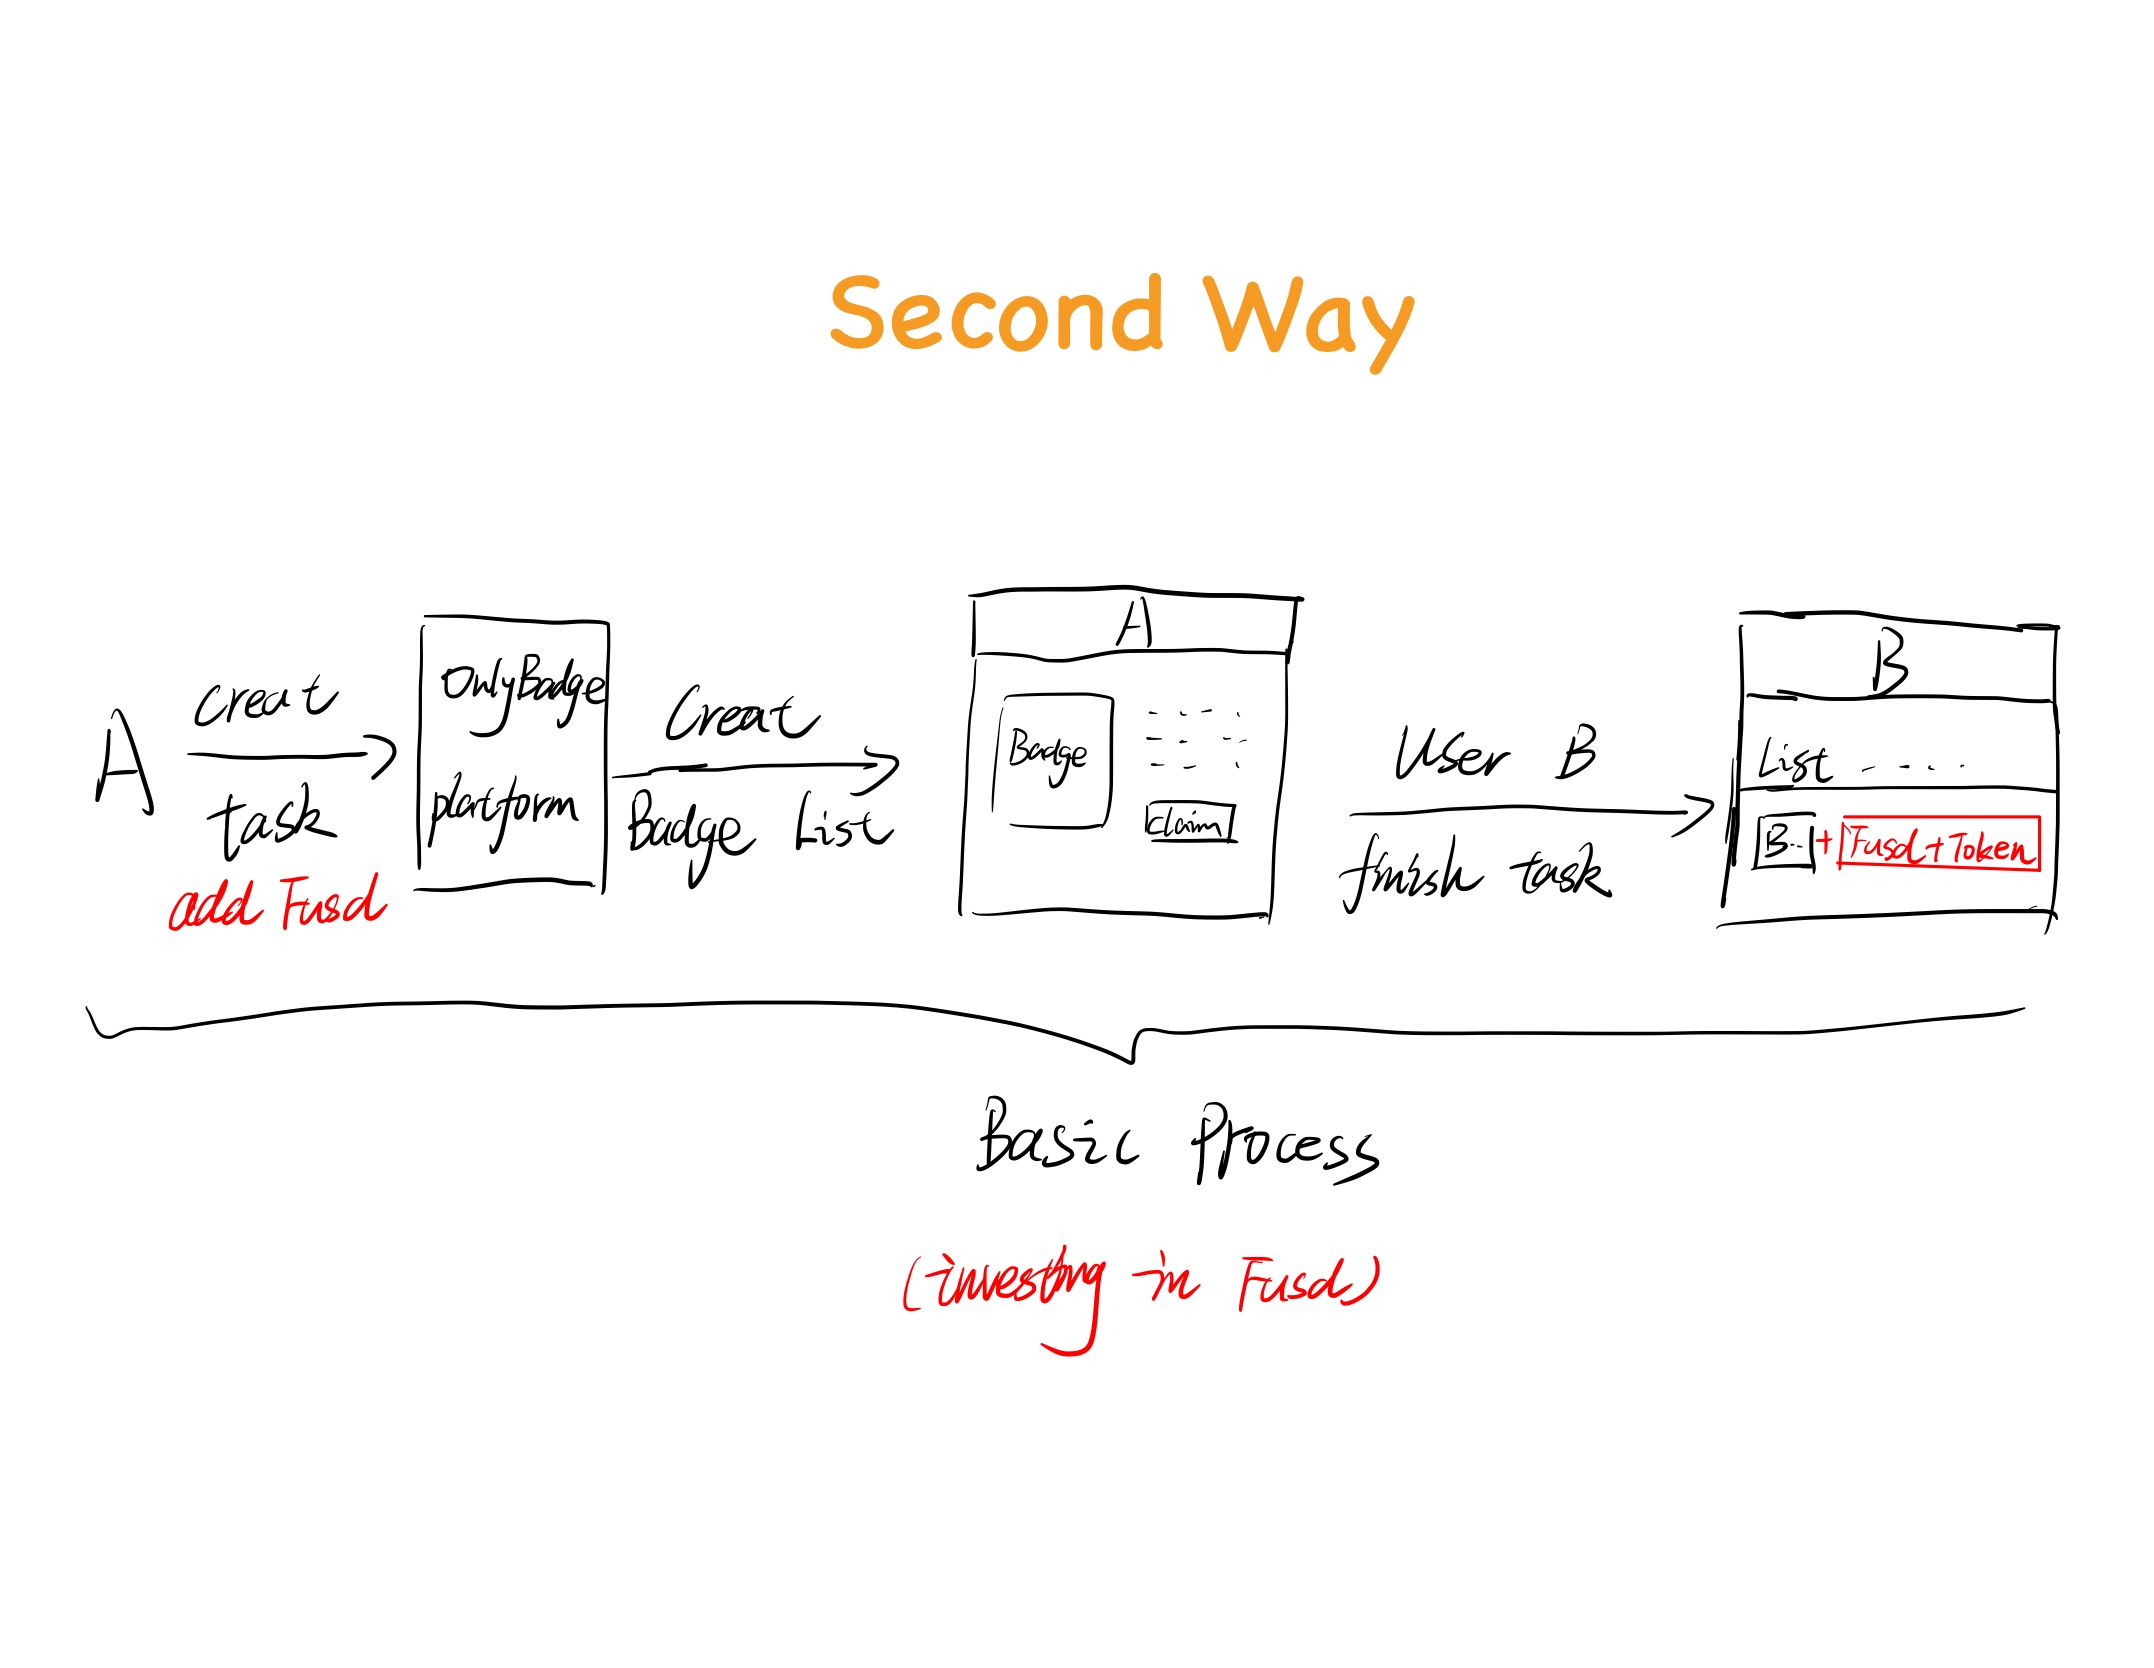 Second Way
A
creat
task
add Fusd
OnlyBadge
platform
Creat
Badge List
A
Badge
Claim
User B
finish task
B
List ....
B... + Fusd + Token
Basic Process
(investing in Fusd)